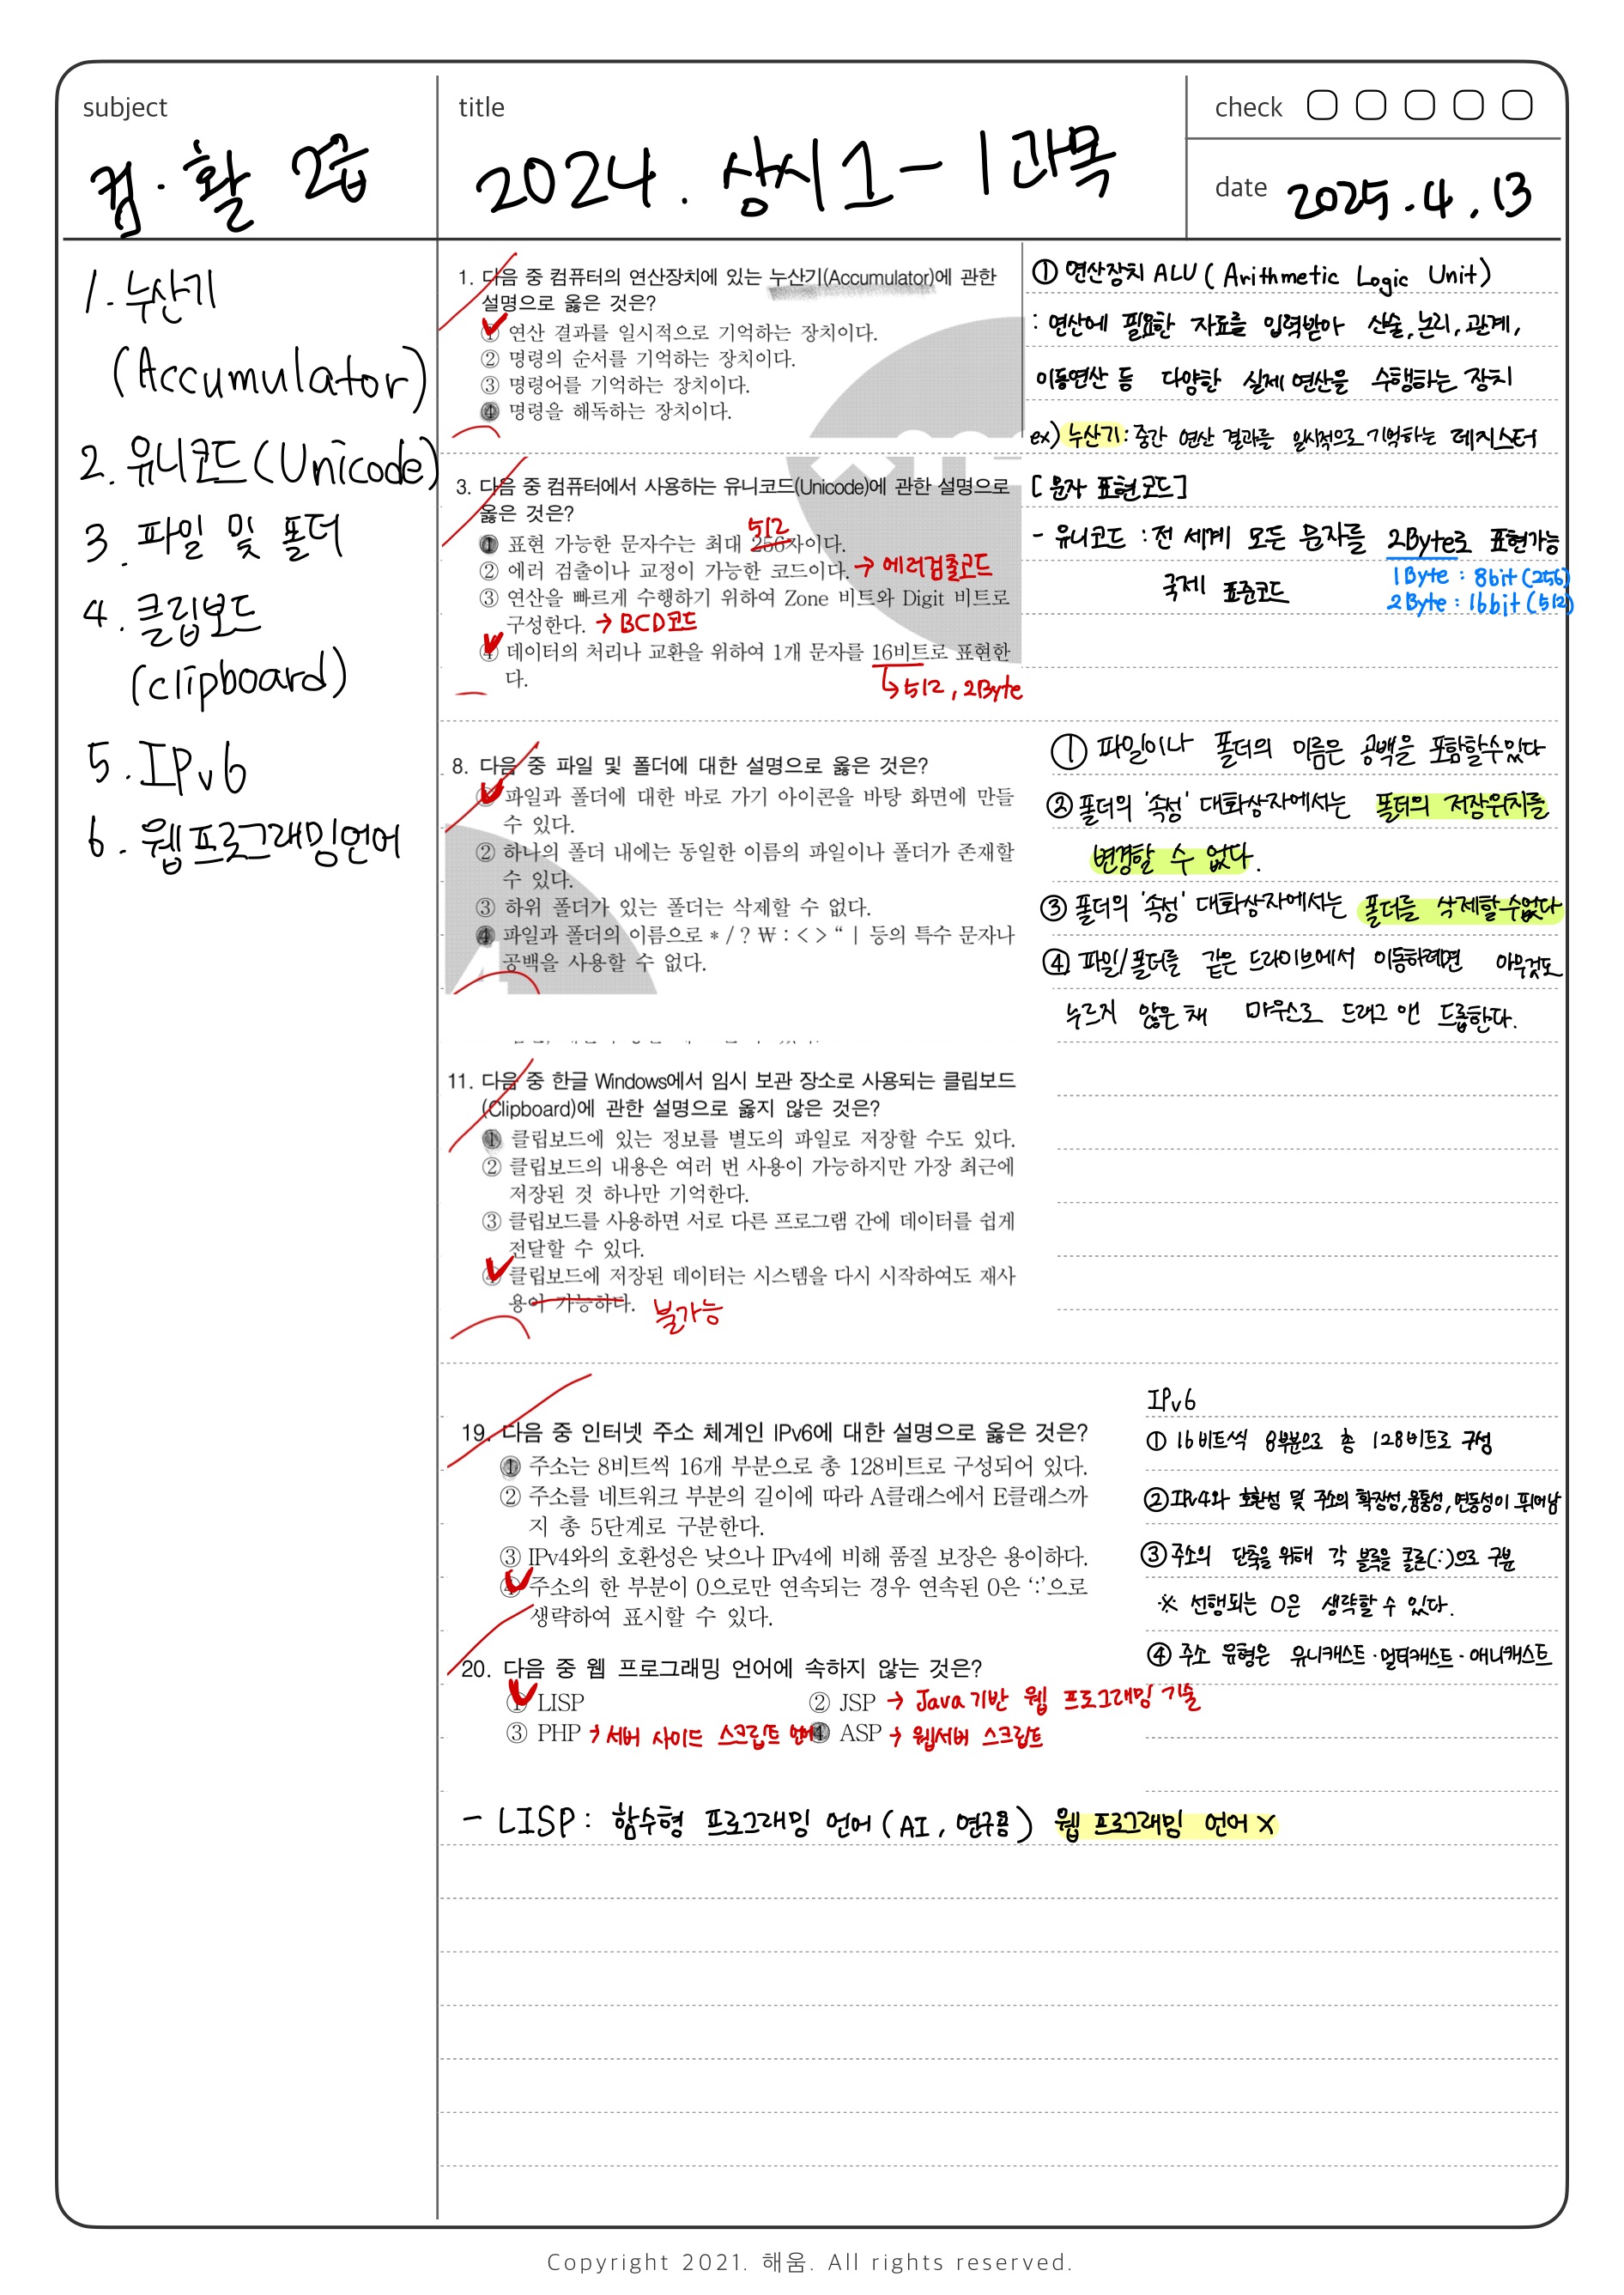 subject
컴·활 2급
title
2024. 상시1-1과목
check
date 2025.4.13
1. 누산기
(Accumulator)
2. 유니코드(Unicode)
3. 파일 및 폴더
4. 클립보드
(clipboard)
5. IPv6
6. 웹프로그래밍언어
1. 다음 중 컴퓨터의 연산장치에 있는 누산기(Accumulator)에 관한
설명으로 옳은 것은?
① 연산 결과를 일시적으로 기억하는 장치이다.
② 명령의 순서를 기억하는 장치이다.
③ 명령어를 기억하는 장치이다.
④ 명령을 해독하는 장치이다.
① 연산장치 ALU (Arithmetic Logic Unit)
: 연산에 필요한 자료를 입력받아 산술, 논리, 관계,
이동연산 등 다양한 실제 연산을 수행하는 장치
ex) 누산기 : 중간 연산 결과를 일시적으로 기억하는 레지스터
3. 다음 중 컴퓨터에서 사용하는 유니코드(Unicode)에 관한 설명으로
옳은 것은?
512
① 표현 가능한 문자수는 최대 256자이다.
② 에러 검출이나 교정이 가능한 코드이다. → 에러검출코드
③ 연산을 빠르게 수행하기 위하여 Zone 비트와 Digit 비트로
구성한다. → BCD코드
④ 데이터의 처리나 교환을 위하여 1개 문자를 16비트로 표현한
다.
↳512, 2Byte
[문자 표현코드]
- 유니코드 : 전 세계 모든 문자를 2Byte로 표현가능
국제 표준코드
1Byte : 8bit (256)
2Byte : 16bit (512)
8. 다음 중 파일 및 폴더에 대한 설명으로 옳은 것은?
① 파일과 폴더에 대한 바로 가기 아이콘을 바탕 화면에 만들
수 있다.
② 하나의 폴더 내에는 동일한 이름의 파일이나 폴더가 존재할
수 있다.
③ 하위 폴더가 있는 폴더는 삭제할 수 없다.
④ 파일과 폴더의 이름으로 * / ? ₩ : < > “ | 등의 특수 문자나
공백을 사용할 수 없다.
① 파일이나 폴더의 이름은 공백을 포함할수있다
② 폴더의 '속성' 대화상자에서는 폴더의 저장위치를
변경할 수 없다.
③ 폴더의 '속성' 대화상자에서는 폴더를 삭제할수없다
④ 파일/폴더를 같은 드라이브에서 이동하려면 아무것도
누르지 않은 채 마우스로 드래그 앤 드롭한다.
11. 다음 중 한글 Windows에서 임시 보관 장소로 사용되는 클립보드
(Clipboard)에 관한 설명으로 옳지 않은 것은?
① 클립보드에 있는 정보를 별도의 파일로 저장할 수도 있다.
② 클립보드의 내용은 여러 번 사용이 가능하지만 가장 최근에
저장된 것 하나만 기억한다.
③ 클립보드를 사용하면 서로 다른 프로그램 간에 데이터를 쉽게
전달할 수 있다.
④ 클립보드에 저장된 데이터는 시스템을 다시 시작하여도 재사
용이 가능하다. 불가능
19. 다음 중 인터넷 주소 체계인 IPv6에 대한 설명으로 옳은 것은?
① 주소는 8비트씩 16개 부분으로 총 128비트로 구성되어 있다.
② 주소를 네트워크 부분의 길이에 따라 A클래스에서 E클래스까
지 총 5단계로 구분한다.
③ IPv4와의 호환성은 낮으나 IPv4에 비해 품질 보장은 용이하다.
④ 주소의 한 부분이 0으로만 연속되는 경우 연속된 0은 ‘:’으로
생략하여 표시할 수 있다.
IPv6
① 16비트씩 8부분으로 총 128비트로 구성
② IPv4와 호환성 및 주소의 확장성, 융통성, 연동성이 뛰어남
③ 주소의 단축을 위해 각 블록을 콜론(:)으로 구분
※ 선행되는 0은 생략할 수 있다.
④ 주소 유형은 유니캐스트·멀티캐스트·애니캐스트
20. 다음 중 웹 프로그래밍 언어에 속하지 않는 것은?
① LISP ② JSP → Java기반 웹 프로그래밍 기술
③ PHP → 서버 사이드 스크립트 언어 ④ ASP → 웹서버 스크립트
- LISP : 함수형 프로그래밍 언어 (AI, 연구용) 웹 프로그래밍 언어 X
Copyright 2021. 해움. All rights reserved.